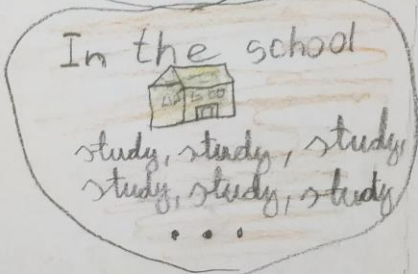 In the school
study, study, study,
study, study, study
...